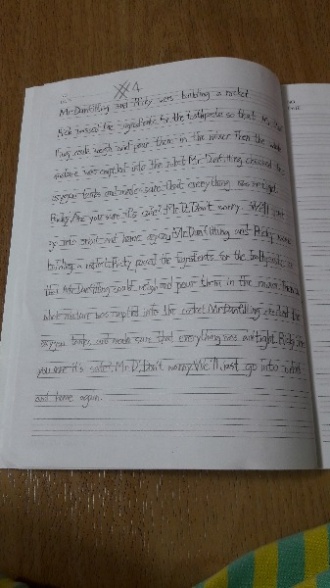 4
Mr Dunfilling and Ricky were building a rocket
Ricky the ingredients for the toothpaste so that Mr
could weigh and pour them in the mixer. Then the whole
mixture was emptied into the Mr Dunfilling checked the
oxygen tanks and made sure that everything was airtight.
Ricky Are you sure it's safe? Mr D, Don't worry. We'll just
go into and home again, Mr Dunfilling and Ricky were
building a Ricky the ingredients for the toothpaste so
that Mr Dunfilling could weigh and pour them in the mixer. Then
whole mixture was emptied into the rocket. Mr Dunfilling checked the
oxygen and made sure that everything was airtight. Ricky
you sure it's safe? Mr D, Don't worry. We'll just go into
and home again.